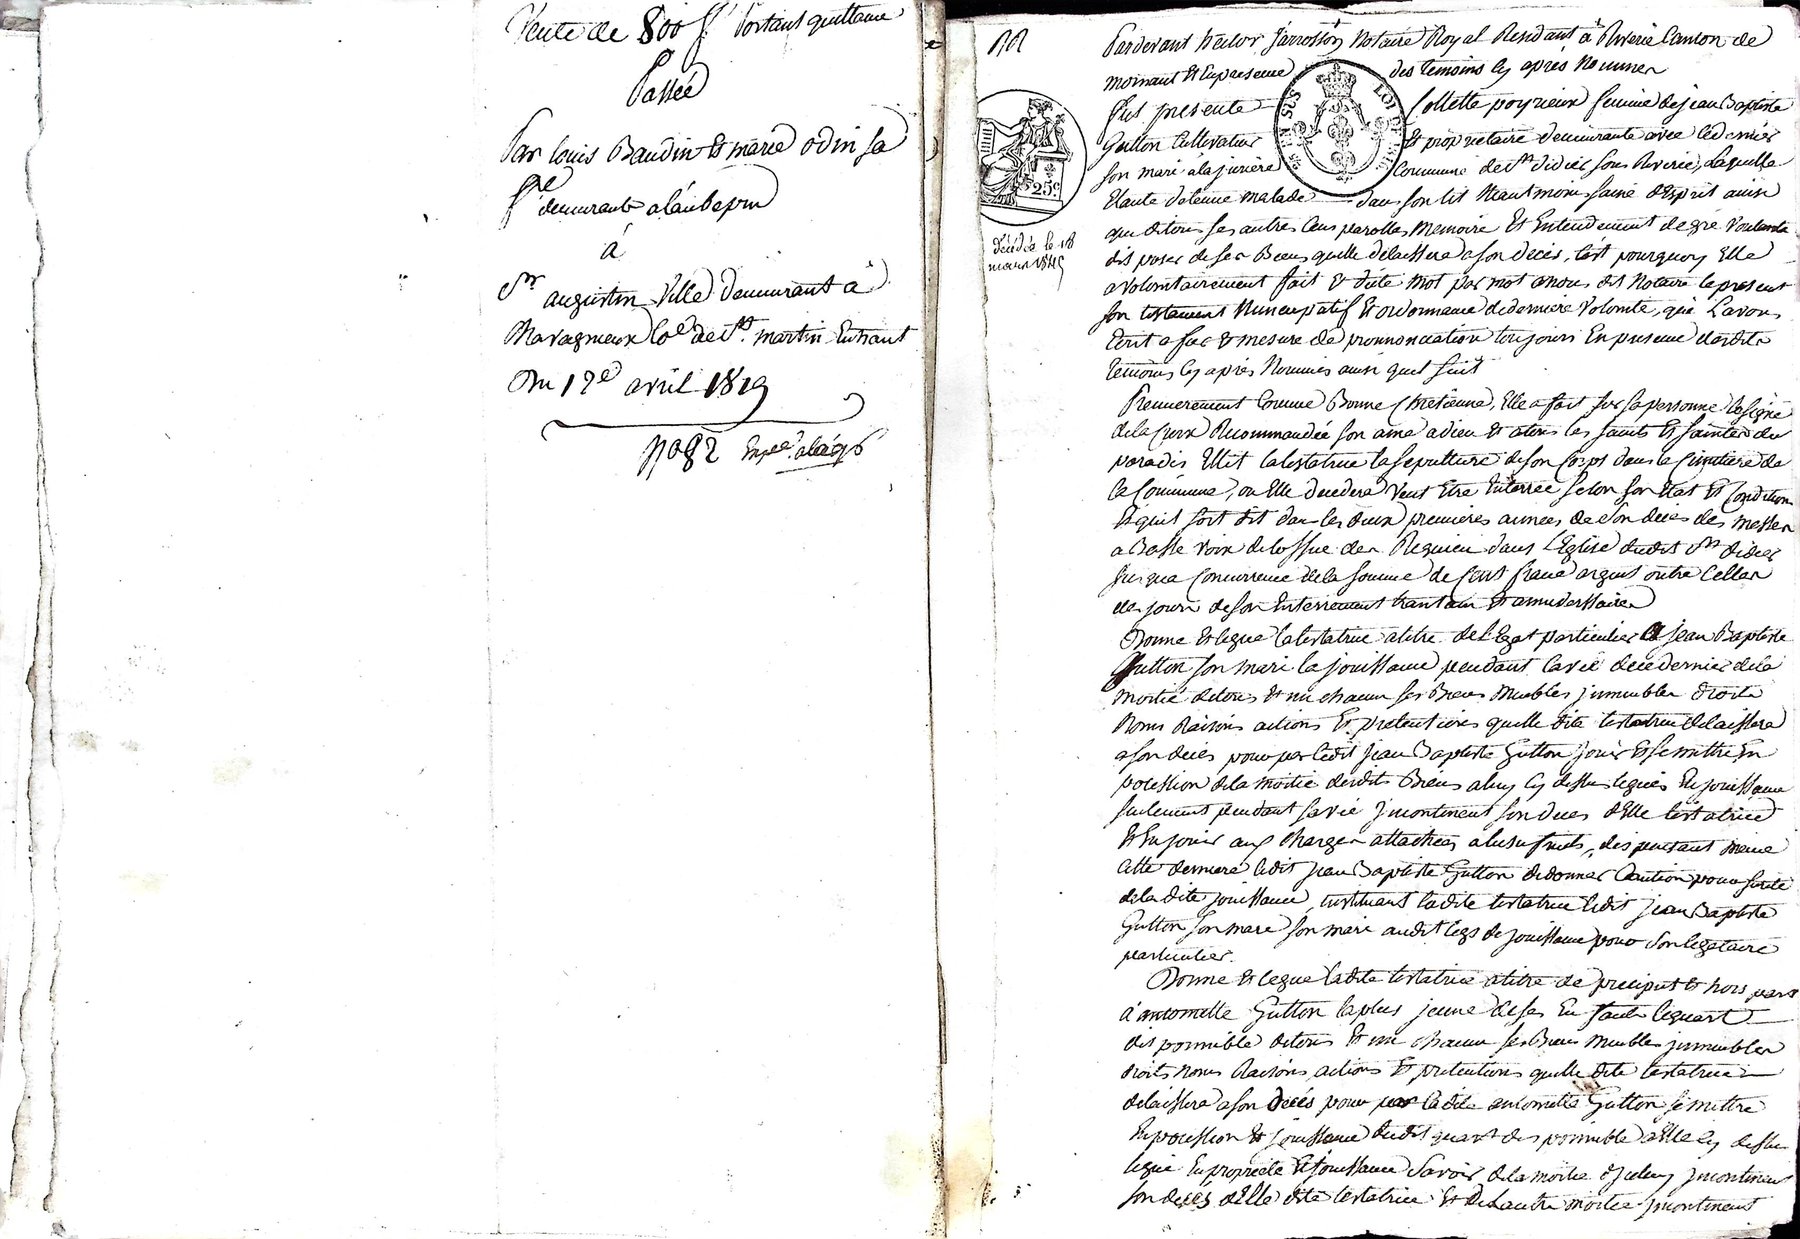 Vente de 800 f. Portant quittance
Passée
Par louis Baudin Et marie odin sa
fe demeurants a l'aubepin
à
Sr augustin Ville demeurant à
Maragneux Coe de St. martin En haut
Du 17e avril 1819
No 82
Pardevant hector jarrosson Notaire Royal Residant à Riverie Canton de
mornant Et En presence des temoins Cy après Nommés
fut presente Collette poyrieux femme de jean Baptiste
Gutton Cultivateur Et proprietaire demeurante avec Ce dernier
son mari a la juriere Commune de St didier sous Riverie, Laquelle
Etante detenue malade dans son lit Neantmoins saine d'Esprit ainsi
que de tous ses autres sens parolles Memoire Et Entendement de gré Voulant
disposer de ses Biens qu'elle delaissera a son décès, C'est pourquoy Elle
a volontairement fait Et dicté mot par mot a nous dit Notaire le present
son testament Nuncupatif Et ordonnance de derniere Volonté, que L'avons
Ecrit a fur Et mesure de prononnciation toujours En presence desdits
temoins Cy après Nommés ainsi quil suit
25c.
décédée le 18
mars 1845
Premierement Comme Bonne Chretienne, Elle a fait sur sa personne le signe
de la Croix Recommandée son ame a dieu Et a tous les saints Et saintes du
paradis Ellit la testatrice la sepulture de son Corps dans le Cimetiere de
la Commune, ou Elle decedera Veut Etre Enterrée selon son Etat Et Condition
Et quil soit dit dans les deux premieres années de son décès des messes
a Basse Voix de loffice des Requiem dans L'Eglise dudit St didier
jusqua Concurrence de la somme de Cent francs argent outre Celles
des jours de son Enterrement
Donne Et legue la testatrice a titre de legat particulier a jean Baptiste
Gutton son mari la jouissance pendant la vie de ce dernier de la
moitié de tous Et un chacun ses Biens Meubles jmmeubles droits
Noms Raisons actions Et pretentions quelle dite testatrice delaissera
a son décès pour par ledit jean Baptiste Gutton jouir Et se mettre En
pocession de la moitié desdits Biens a luy Cy dessus legués En jouissance
seulement pendant sa vie jncontinent son deces d'Elle testatrice
Et En jouir aux charges attachées a lusufruit, dispensant meme
Cette derniere ledit jean Baptiste Gutton de donner Caution pour sureté
de la dite jouissance, instituant ladite testatrice ledit jean Baptiste
Gutton son mari son mari audit legs de jouissance pour son legataire
particulier.
Donne Et legue ladite testatrice a titre de preciput Et hors part
à antomette Gutton la plus jeune de ses Enfants le quart
disponnible de tous Et un chacun ses Biens Meubles jmmeubles
droits Noms Raisons, actions Et pretentions quelle dite testatrice
delaissera a son décès pour par ladite antomette Gutton se mettre
En pocession Et jouissance dudit quart disponnible a Elle Cy dessus
legué En proprieté Et jouissance Savoir de la moitié jncontinent
son décès d'Elle dite testatrice Et de Lautre moitié jncontinent